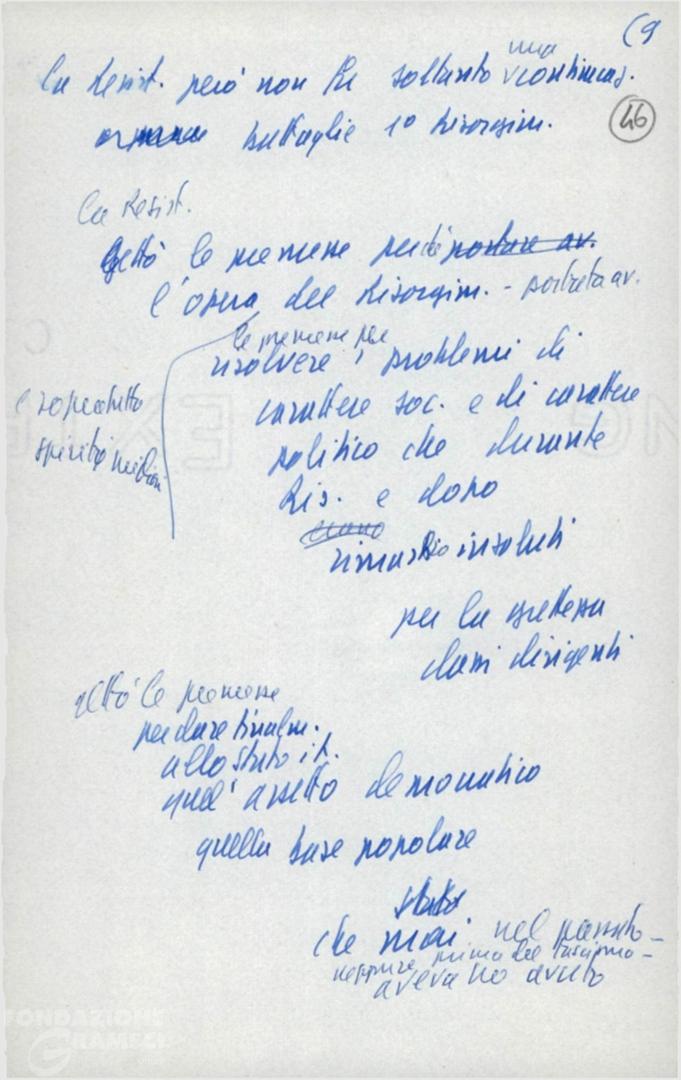 (9
46
La Resist. però non fu soltanto una continuaz.
battaglie 1° Risorgim.
La Resist.
Gettò le premesse perché portare av.
l'opera del Risorgim. - portata av.
le premesse per
risolvere i problemi di
carattere soc. e di carattere
politico che durante
Ris. e dopo
erano
rimasti insoluti
per la grettezza
classi dirigenti
e sopratutto
spirito
gettò le premesse
per dare finalm.
allo Stato it.
quell'assetto democratico
quella base popolare
che mai nel passato -
neppure prima del fascismo -
avevano avuto
FONDAZIONE
GRAMSCI